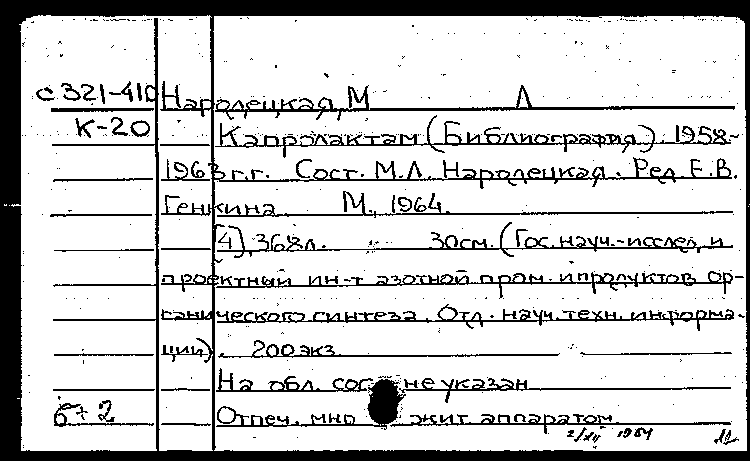 с321-410 Народецкая, М Л
К-20 Капролактам (Библиография). 1958-
1963 г.г. Сост. М.Л. Народецкая. Ред Е.В.
Генкина. М., 1964.
[4], 368л. 30см. (Гос. науч.-исслед. и
проектный ин-т азотной пром. и продуктов ор-
ганического синтеза. Отд. науч. техн. информа-
ции). 200 экз.
На обл. сос не указан
Отпеч. мно жит. аппаратом